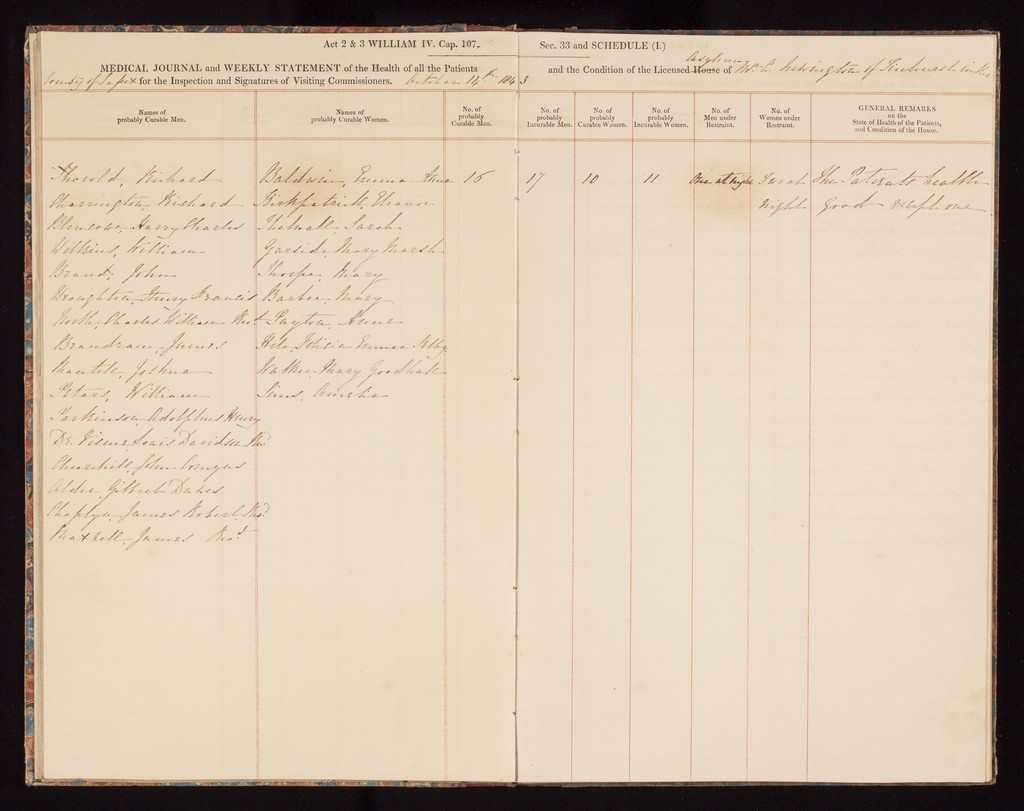 Act 2 & 3 WILLIAM IV. Cap. 107.
Sec. 33 and SCHEDULE (I.)
MEDICAL JOURNAL and WEEKLY STATEMENT of the Health of all the Patients
and the Condition of the Licensed House of
Asylum
Wm C. Newington of Ticehurst in the
County of Sussex for the Inspection and Signatures of Visiting Commissioners. October 14th 1843
Names of
probably Curable Men.
Names of
probably Curable Women.
No. of
probably
Curable Men.
No. of
probably
Incurable Men.
No. of
probably
Curable Women.
No. of
probably
Incurable Women.
No. of
Men under
Restraint.
No. of
Women under
Restraint.
GENERAL REMARKS
on the
State of Health of the Patients,
and Condition of the House.
Thorold, Richard Baldwin, Emma Anne 16 17 10 11 One at night The Patients health
Charrington, Richard Kirkpatrick, Eleanor night good except one
Blencowe, Harry Charles Thelwall, Sarah
Wilkins, William Garside, Mary Marsh
Brand, John Thorpe, Mary
Broughton, Henry Francis Barber, Mary
North, Charles William Payton, Anne
Brandram, James Felicia Emma
Mantell, Joshua Walker, Mary Goodhall
Peters, William Sims, Amelia
Parkinson, Adolphus Henry
De Visme, Louis Davidson
Churchill, John
Aldie, Gilbert
Chaplyn, James Robert
Maxwell, James